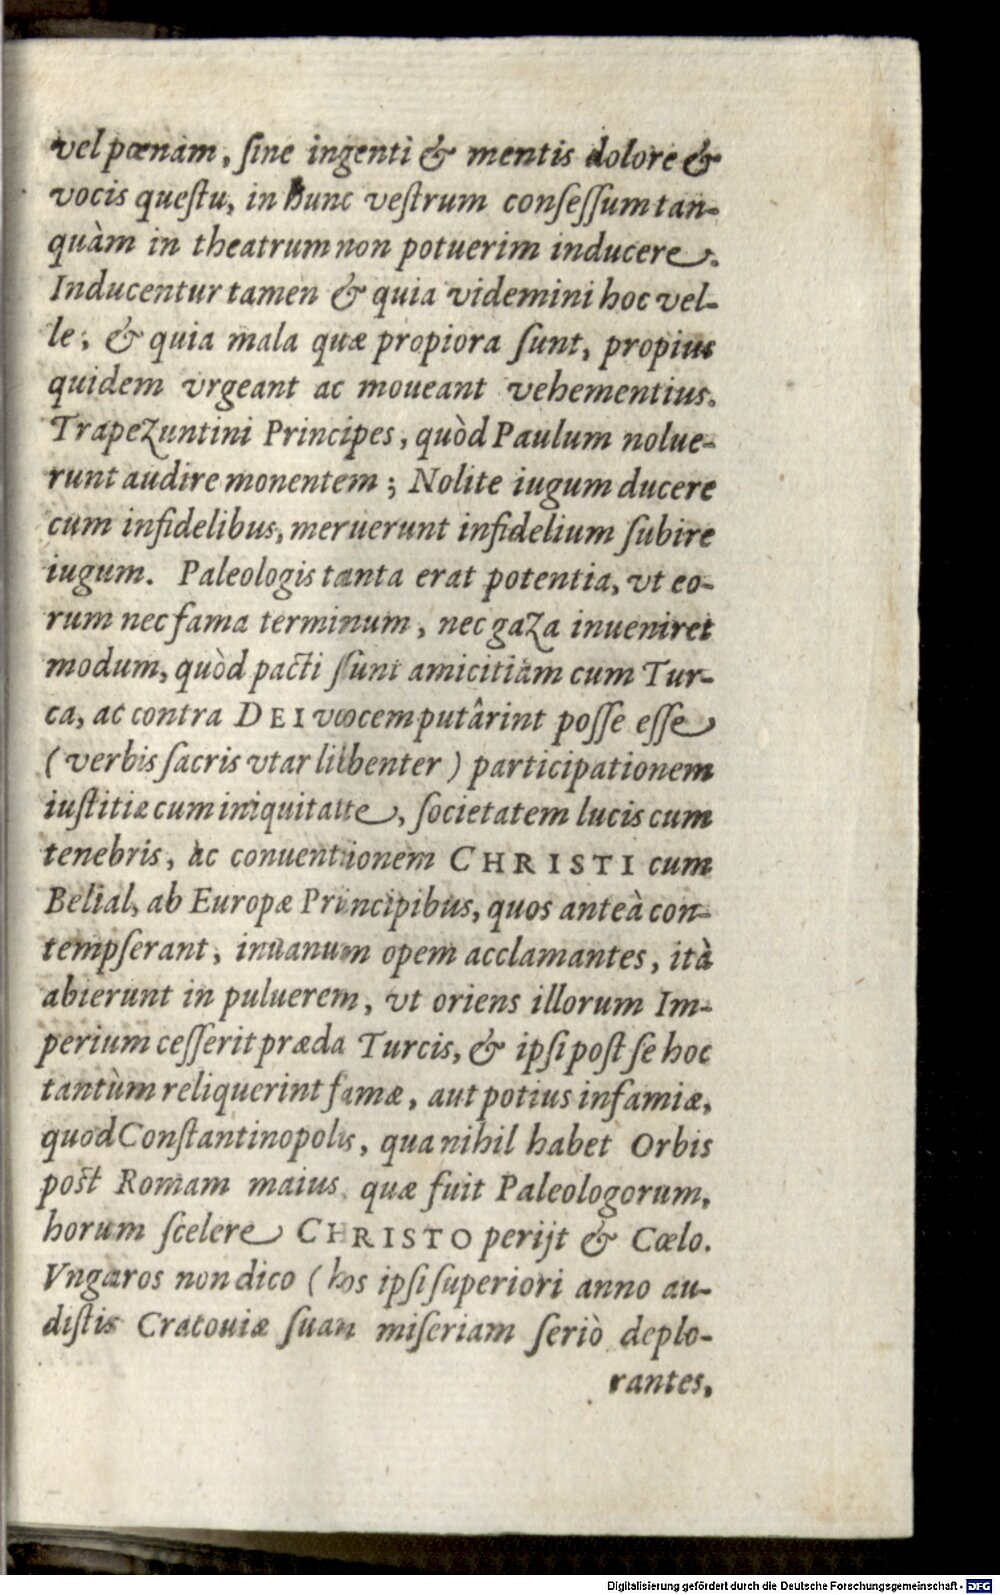 vel pœnam, ſine ingenti & mentis dolore &
vocis queſtu, in hunc veſtrum conſeſſum tan-
quàm in theatrum non potuerim inducere.
Inducentur tamen & quia videmini hoc vel-
le; & quia mala quæ propiora ſunt, propius
quidem vrgeant ac moueant vehementius.
Trapezuntini Principes, quòd Paulum nolue-
runt audire monentem; Nolite iugum ducere
cum infidelibus, meruerunt infidelium ſubire
iugum. Paleologis tanta erat potentia, vt eo-
rum nec fama terminum, nec gaza inueniret
modum, quòd pacti ſunt amicitiam cum Tur-
ca, ac contra DEI vocem putârint poſſe eſſe
(verbis ſacris vtar libenter) participationem
iuſtitiæ cum iniquitate, ſocietatem lucis cum
tenebris, ac conuentionem CHRISTI cum
Belial, ab Europæ Principibus, quos anteà con-
tempſerant, inuanum opem acclamantes, ità
abierunt in puluerem, vt oriens illorum Im-
perium ceſſerit præda Turcis, & ipſi poſt ſe hoc
tantùm reliquerint famæ, aut potius infamiæ,
quod Conſtantinopolis, qua nihil habet Orbis
poſt Romam maius, quæ fuit Paleologorum,
horum ſcelere CHRISTO perijt & Cœlo.
Vngaros non dico (hos ipſi ſuperiori anno au-
diſtis Cracouiæ ſuam miſeriam ſeriò deplo-
rantes,
Digitalisierung gefördert durch die Deutsche Forschungsgemeinschaft - DFG